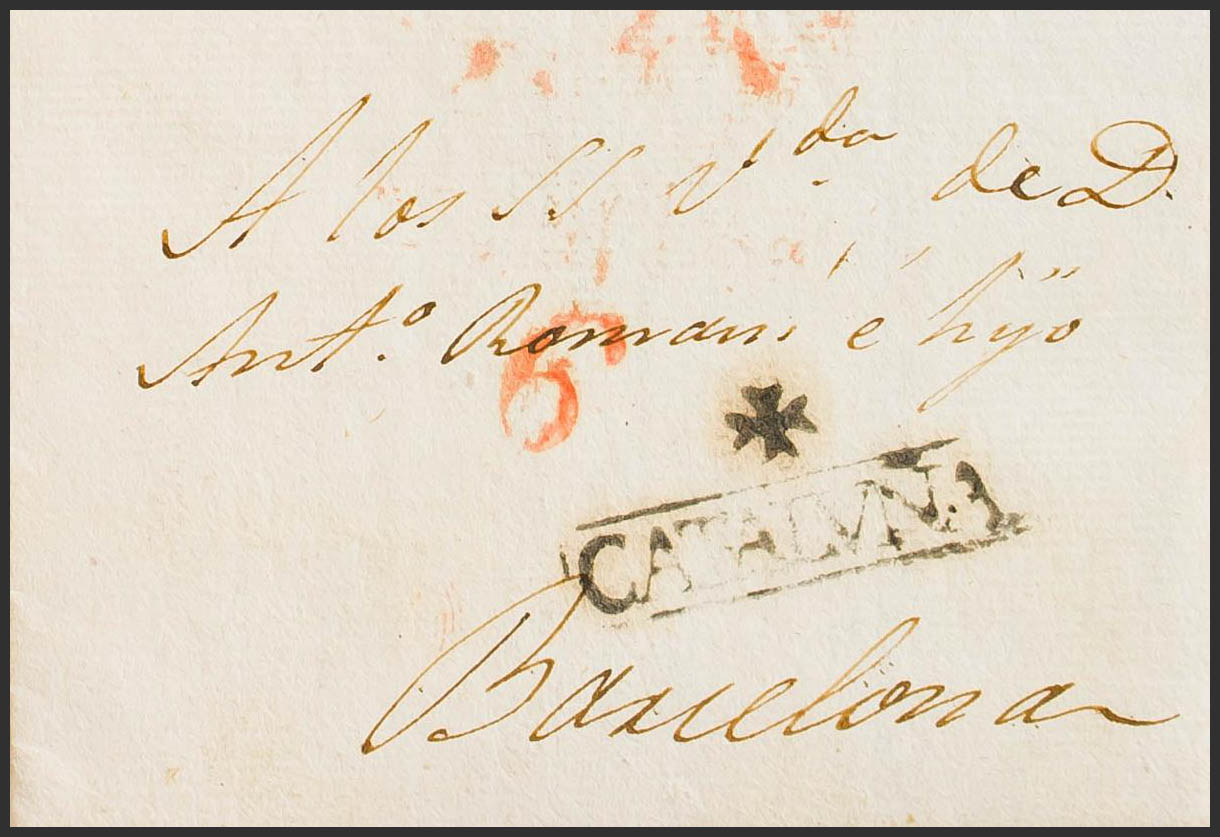 A los SS V.da de D.
Ant.o Romaní é hijo
6
CATALVÑA
Barcelona